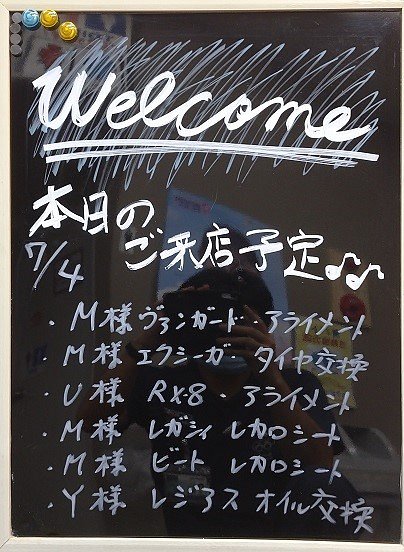 Welcome
本日の
ご来店予定♪♪
7/4
・M様 ヴァンガード・アライメント
・M様 エクシーガ・タイヤ交換
・U様 RX-8・アライメント
・M様 レガシィ レカロシート
・M様 ビート レカロシート
・Y様 レジアス オイル交換